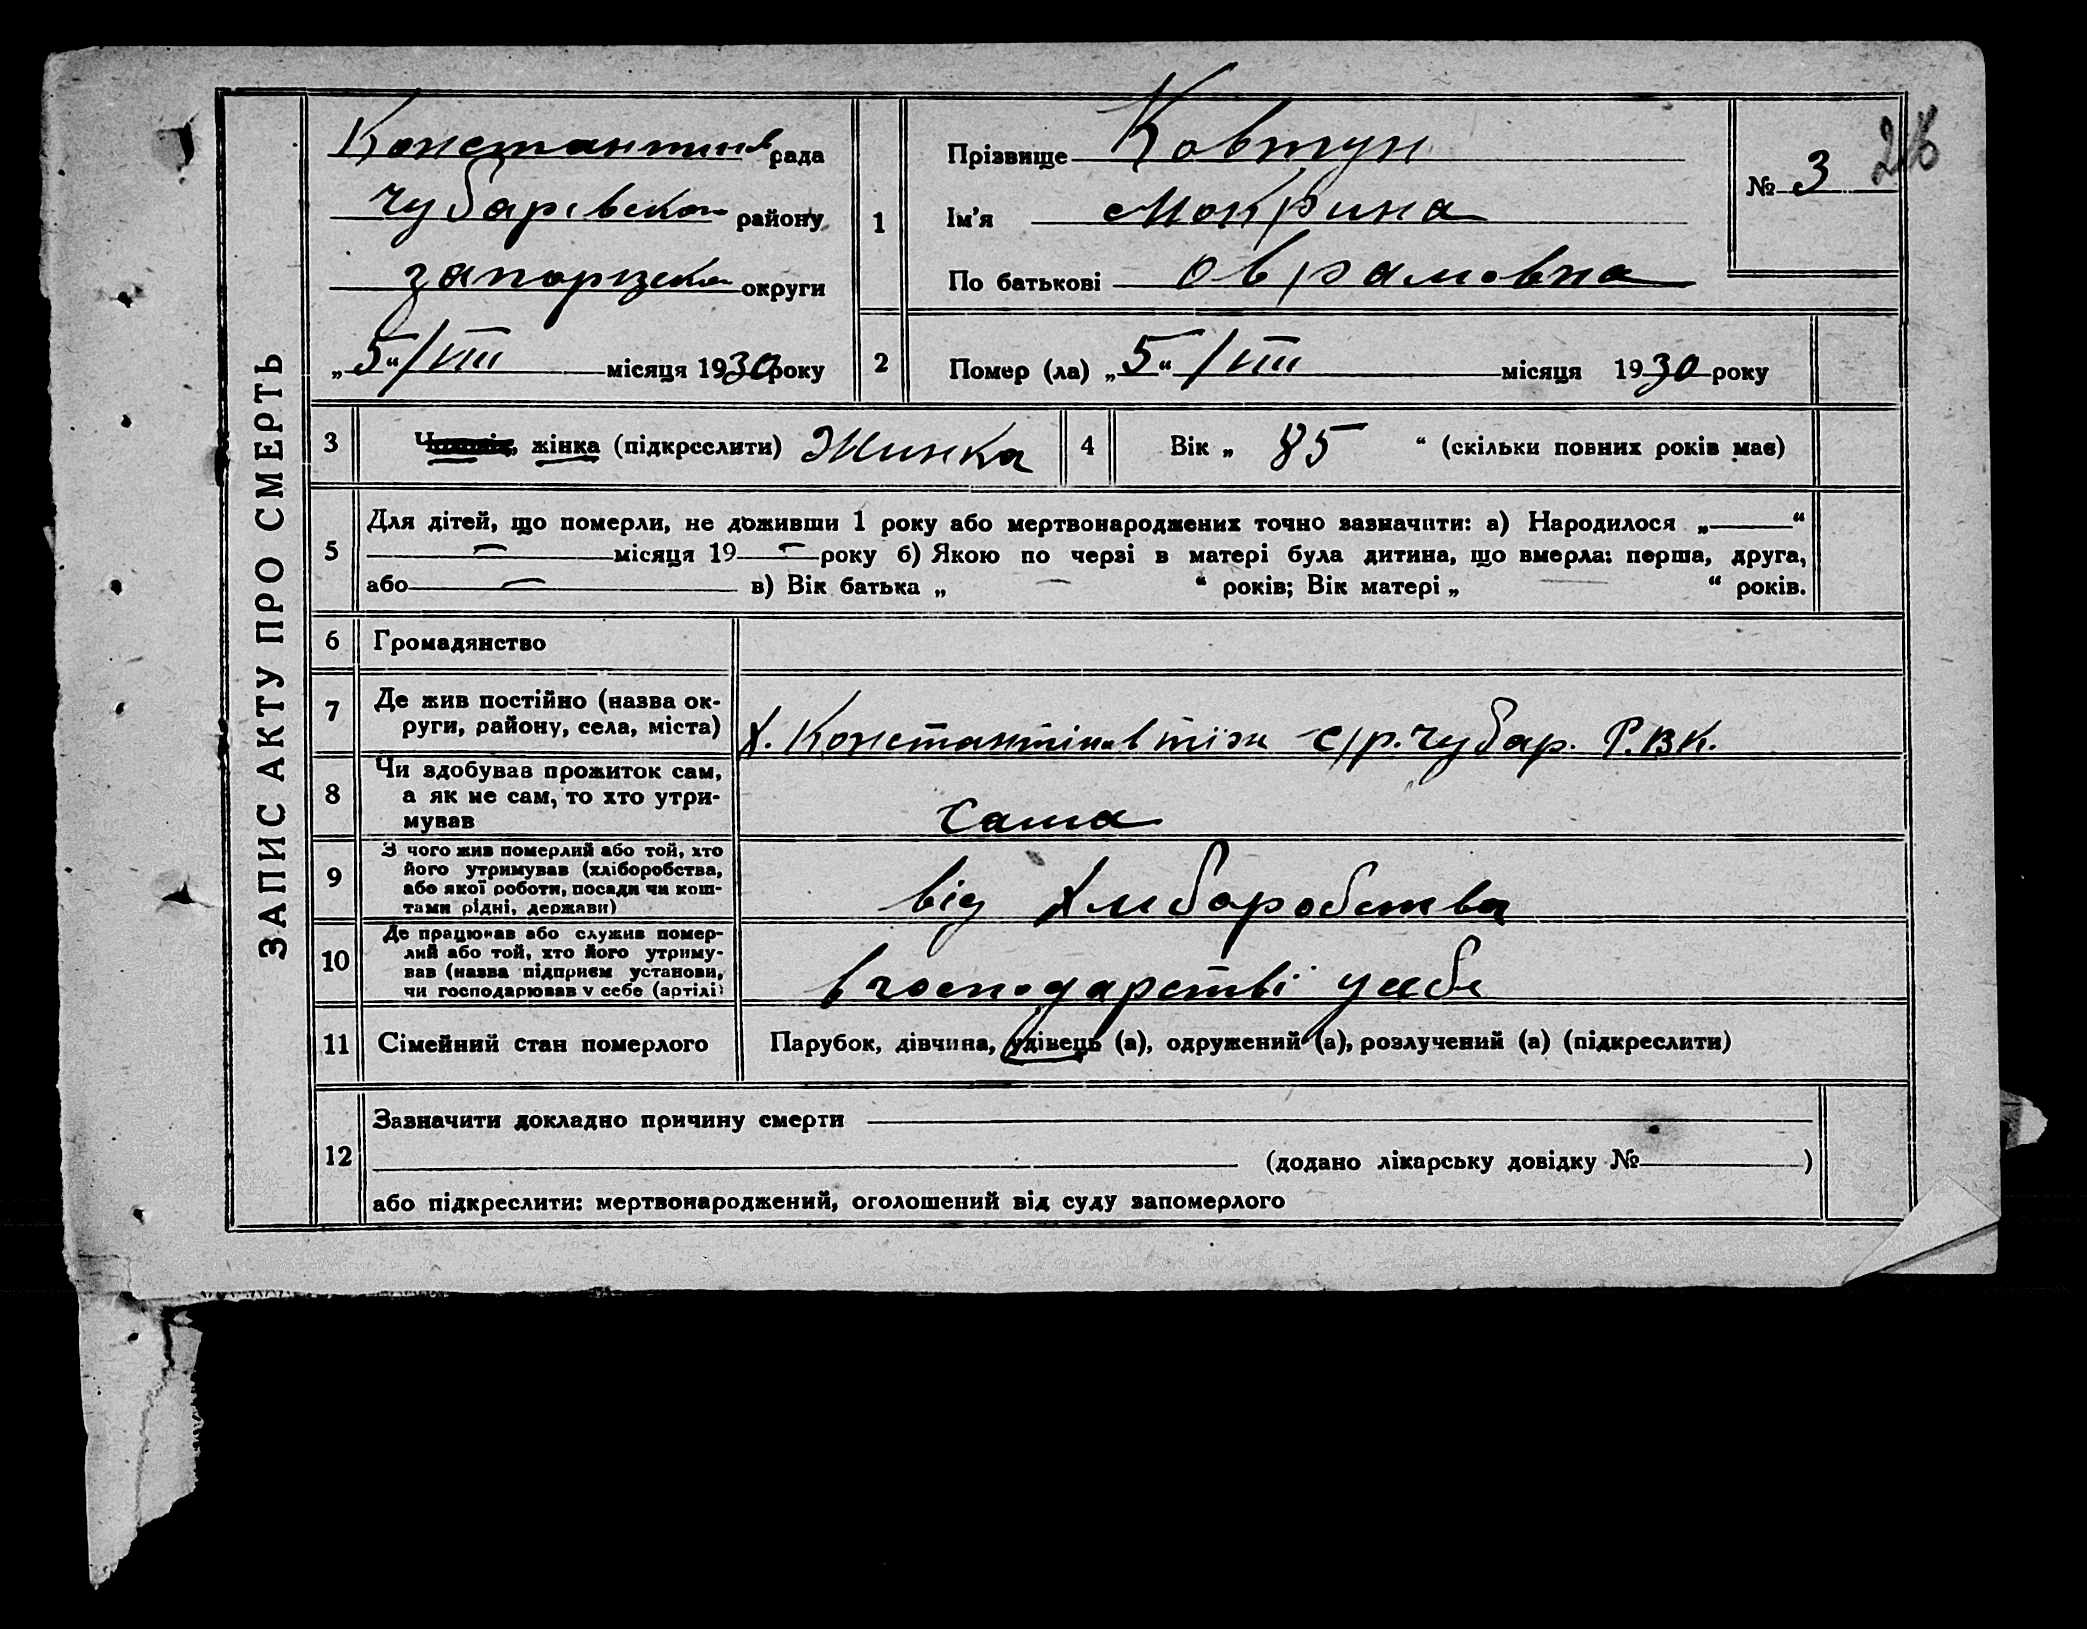 ЗАПИС АКТУ ПРО СМЕРТЬ
Константинів рада
Чубарівсько району
запорізько округи
„5“/VIII місяця 1930 року
1
Прізвище Ковтун
Ім'я Мокрина
По батькові Оврамовна
№ 3
2
Помер (ла) „5“/VIII місяця 1930 року
3
жінка (підкреслити) Жинка
4
Вік „ 85 “ (скільки повних років має)
5
Для дітей, що померли, не доживши 1 року або мертвонароджених точно зазначити: а) Народилося „ “
місяця 19 року б) Якою по черзі в матері була дитина, що вмерла: перша, друга,
або в) Вік батька „ “ років; Вік матері „ “ років.
6
Громадянство
7
Де жив постійно (назва ок-
руги, району, села, міста)
х. Константінов с/р. Чубар. Р.В.К.
8
Чи здобував прожиток сам,
а як не сам, то хто утри-
мував
сама
9
З чого жив померлий або той, хто
його утримував (хліборобства,
або якої роботи, посади чи кош-
тами рідні, держави)
від хлиборобства
10
Де працював або служив помер-
лий або той, хто його утриму-
вав (назва підприєм установи,
чи господарював у себе (артілі)
в господарстві у себе
11
Сімейний стан померлого
Парубок, дівчина, удівець (а), одружений (а), розлучений (а) (підкреслити)
12
Зазначити докладно причину смерти
(додано лікарську довідку № )
або підкреслити: мертвонароджений, оголошений від суду запомерлого